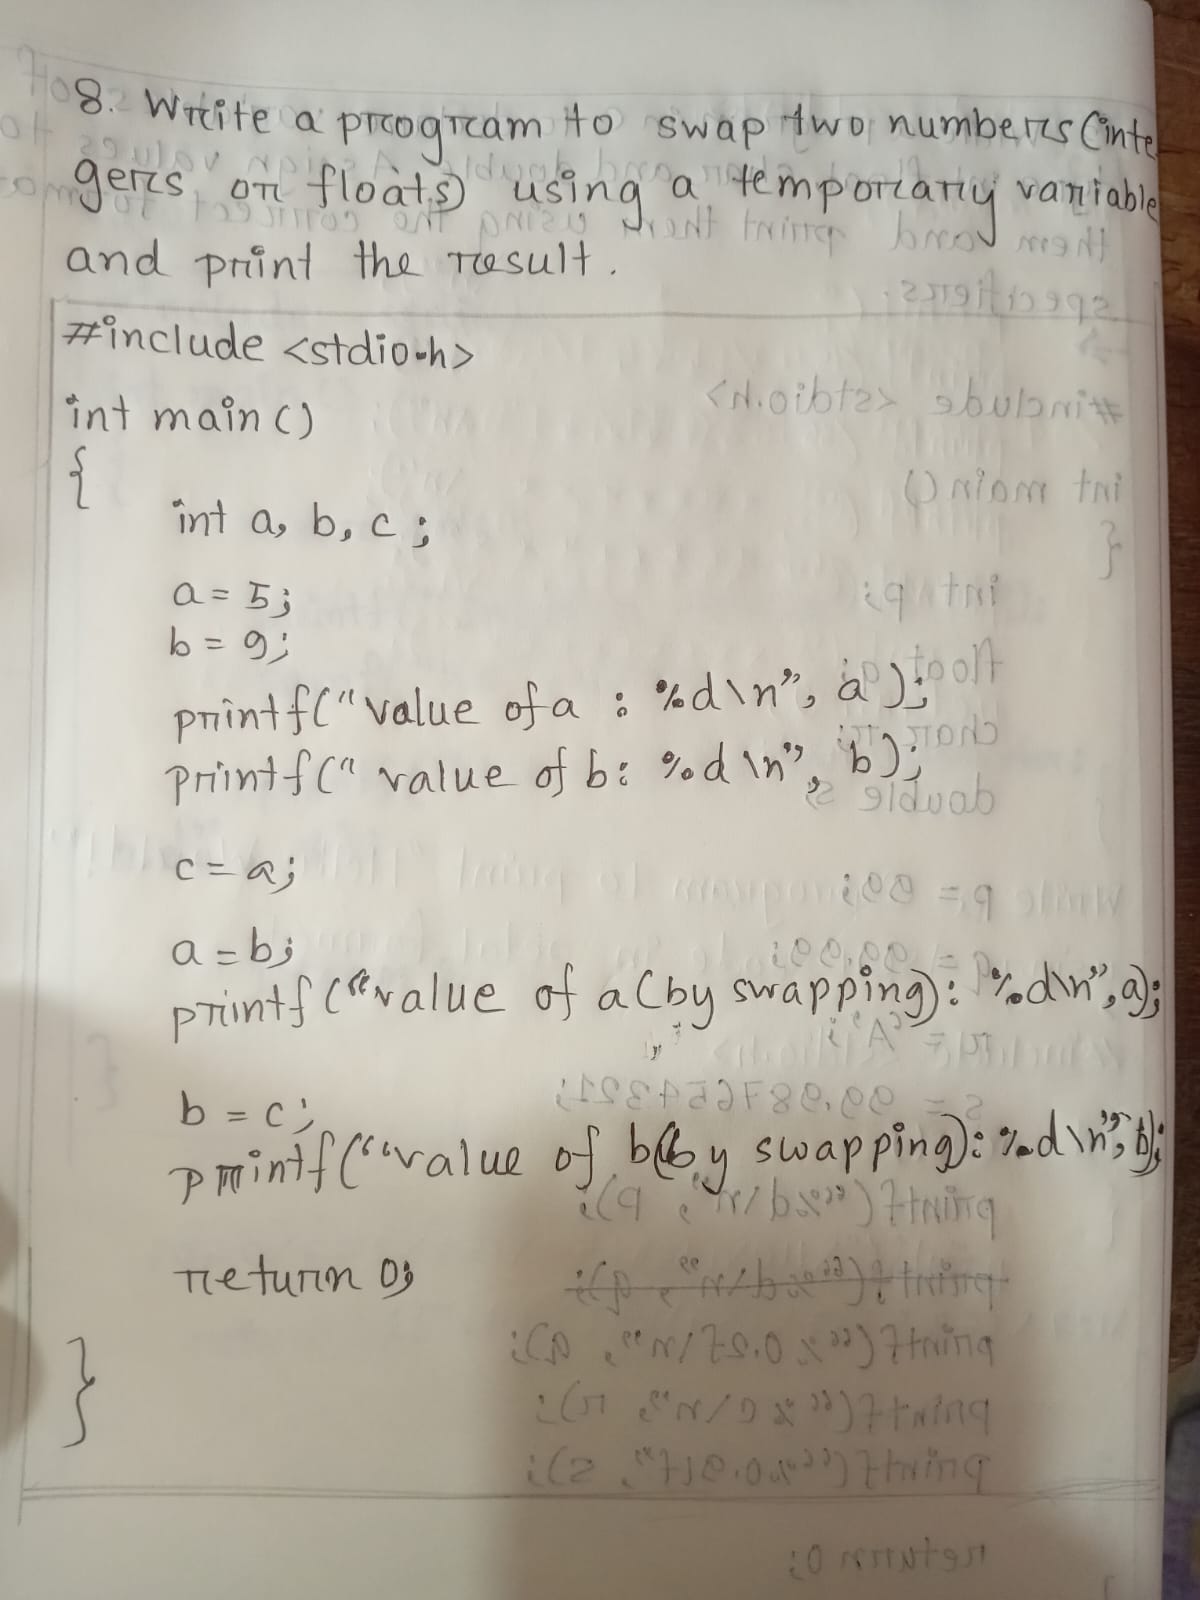 8. Write a program to swap two numbers (inte
gers or floats) using a temporary variable
and print the result.
#include <stdio.h>
int main()
{
int a, b, c;
a = 5;
b = 9;
printf("value of a : %d\n", a);
printf(" value of b: %d\n", b);
c = a;
a = b;
printf("value of a(by swapping): %d\n", a);
b = c;
printf("value of b(by swapping): %d\n", b);
return 0;
}